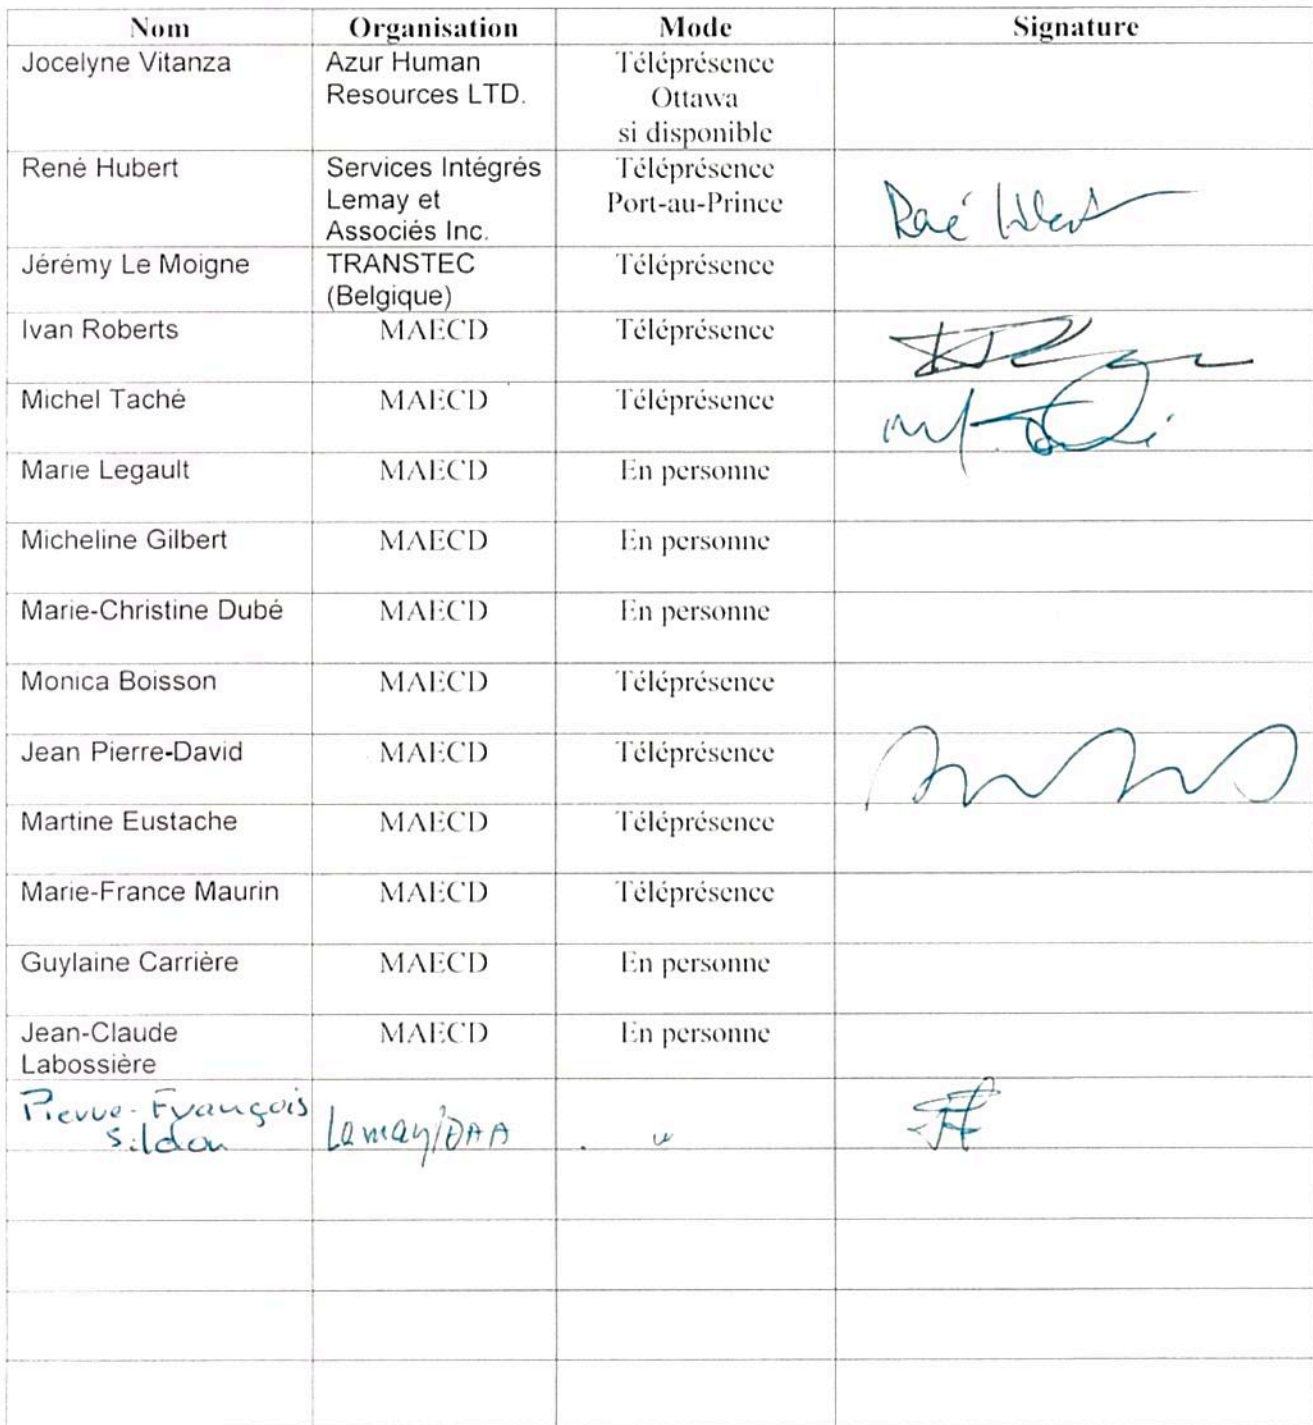 Nom Organisation Mode Signature
Jocelyne Vitanza Azur Human Téléprésence
Resources LTD. Ottawa
si disponible
René Hubert Services Intégrés Téléprésence
Lemay et Port-au-Prince
Associés Inc.
Jérémy Le Moigne TRANSTEC Téléprésence
(Belgique)
Ivan Roberts MAECD Téléprésence
Michel Taché MAECD Téléprésence
Marie Legault MAECD En personne
Micheline Gilbert MAECD En personne
Marie-Christine Dubé MAECD En personne
Monica Boisson MAECD Téléprésence
Jean Pierre-David MAECD Téléprésence
Martine Eustache MAECD Téléprésence
Marie-France Maurin MAECD Téléprésence
Guylaine Carrière MAECD En personne
Jean-Claude MAECD En personne
Labossière
Pierre-François Lemay/DAA